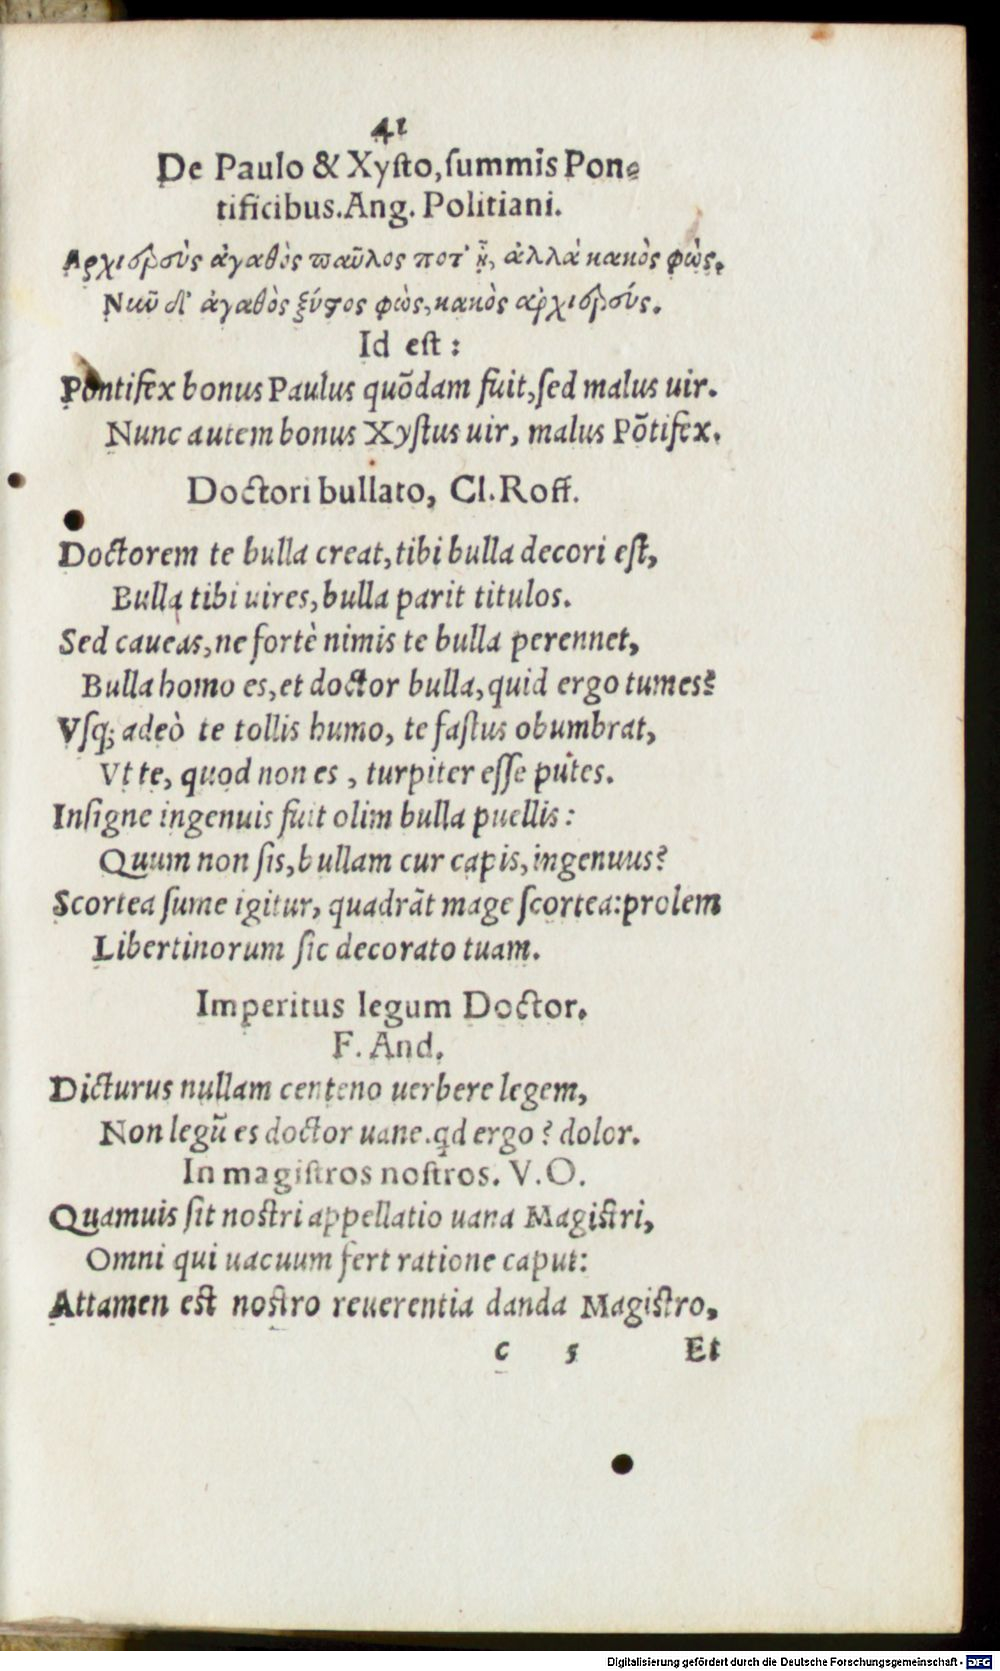 41
De Paulo & Xyſto, ſummis Pon-
tificibus. Ang. Politiani.
Αρχιερεὺς ἀγαθὸς παῦλος ποτ' ἦν, ἀλλὰ κακὸς φώς.
Νῦν δ' ἀγαθὸς ξύστος φὼς, κακὸς ἀρχιερεύς.
Id eſt:
Pontifex bonus Paulus quõdam fuit, ſed malus uir.
Nunc autem bonus Xyſtus uir, malus Põtifex.
Doctori bullato, Cl. Roff.
Doctorem te bulla creat, tibi bulla decori eſt,
Bulla tibi uires, bulla parit titulos.
Sed caueas, ne fortè nimis te bulla perennet,
Bulla homo es, et doctor bulla, quid ergo tumes?
Vſq; adeò te tollis humo, te faſtus obumbrat,
Vt te, quod non es, turpiter eſſe putes.
Inſigne ingenuis fuit olim bulla puellis:
Quum non ſis, bullam cur capis, ingenuus?
Scortea ſume igitur, quadrãt mage ſcortea: prolem
Libertinorum ſic decorato tuam.
Imperitus legum Doctor.
F. And.
Dicturus nullam centeno uerbere legem,
Non legũ es doctor uane. qd ergo? dolor.
In magiſtros noſtros. V. O.
Quamuis ſit noſtri appellatio uana Magiſtri,
Omni qui uacuum fert ratione caput:
Attamen eſt noſtro reuerentia danda Magiſtro,
c 5 Et
Digitalisierung gefördert durch die Deutsche Forschungsgemeinschaft - DFG